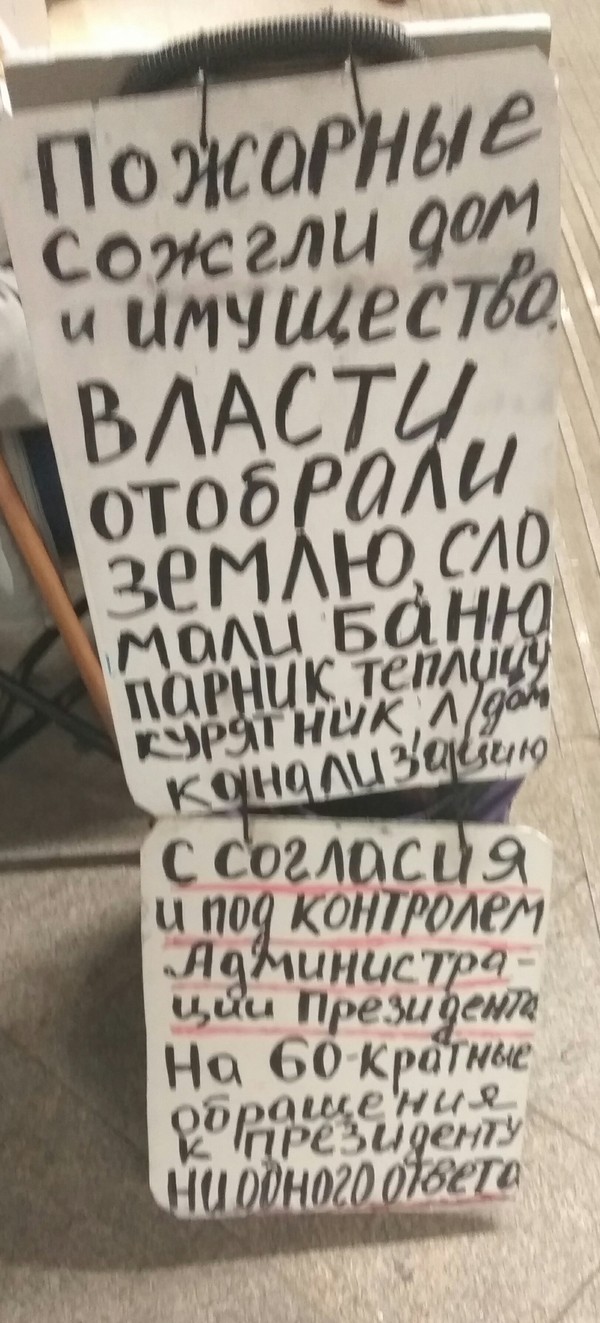 Пожарные
сожгли дом
и имущество.
ВЛАСТИ
отобрали
землю, сло
мали баню
парник теплицу
курятник, л/дом
канализацию
с согласия
и под контролем
Администра-
ции Президента
На 60-кратные
обращения
к президенту
ни одного ответа